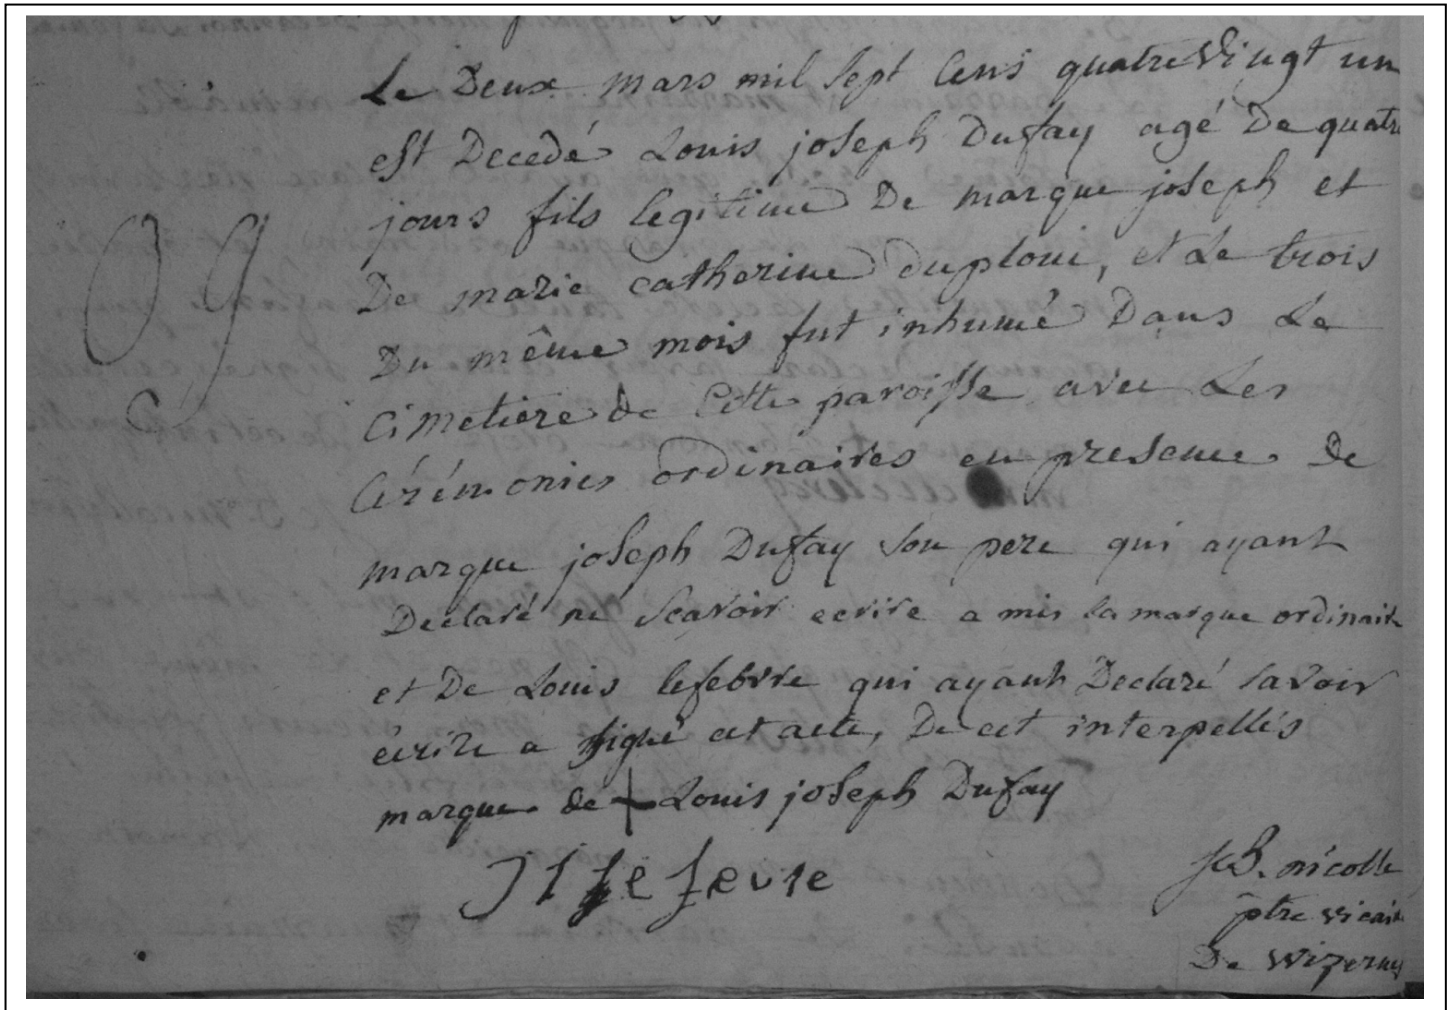 Le Deux mars mil sept Cens quatre Vingt un
est Decedé Louis joseph Dufay agé De quatre
jours fils legitime De marque joseph et
De marie catherine duploui, et Le trois
Du même mois fut inhumé Dans Le
Cimetiere de Cette paroisse avec Les
Cérémonies ordinaires en presence De
marque joseph Dufay son pere qui ayant
Declaré ne scavoir ecrire a mis la marque ordinaire
et De Louis lefebvre qui ayant Declaré savoir
écrire a signé cet acte, De cet interpellés
marque de + Louis joseph Dufay
lefevre
JB. nicolle
ptre vicaire
De Wizernes